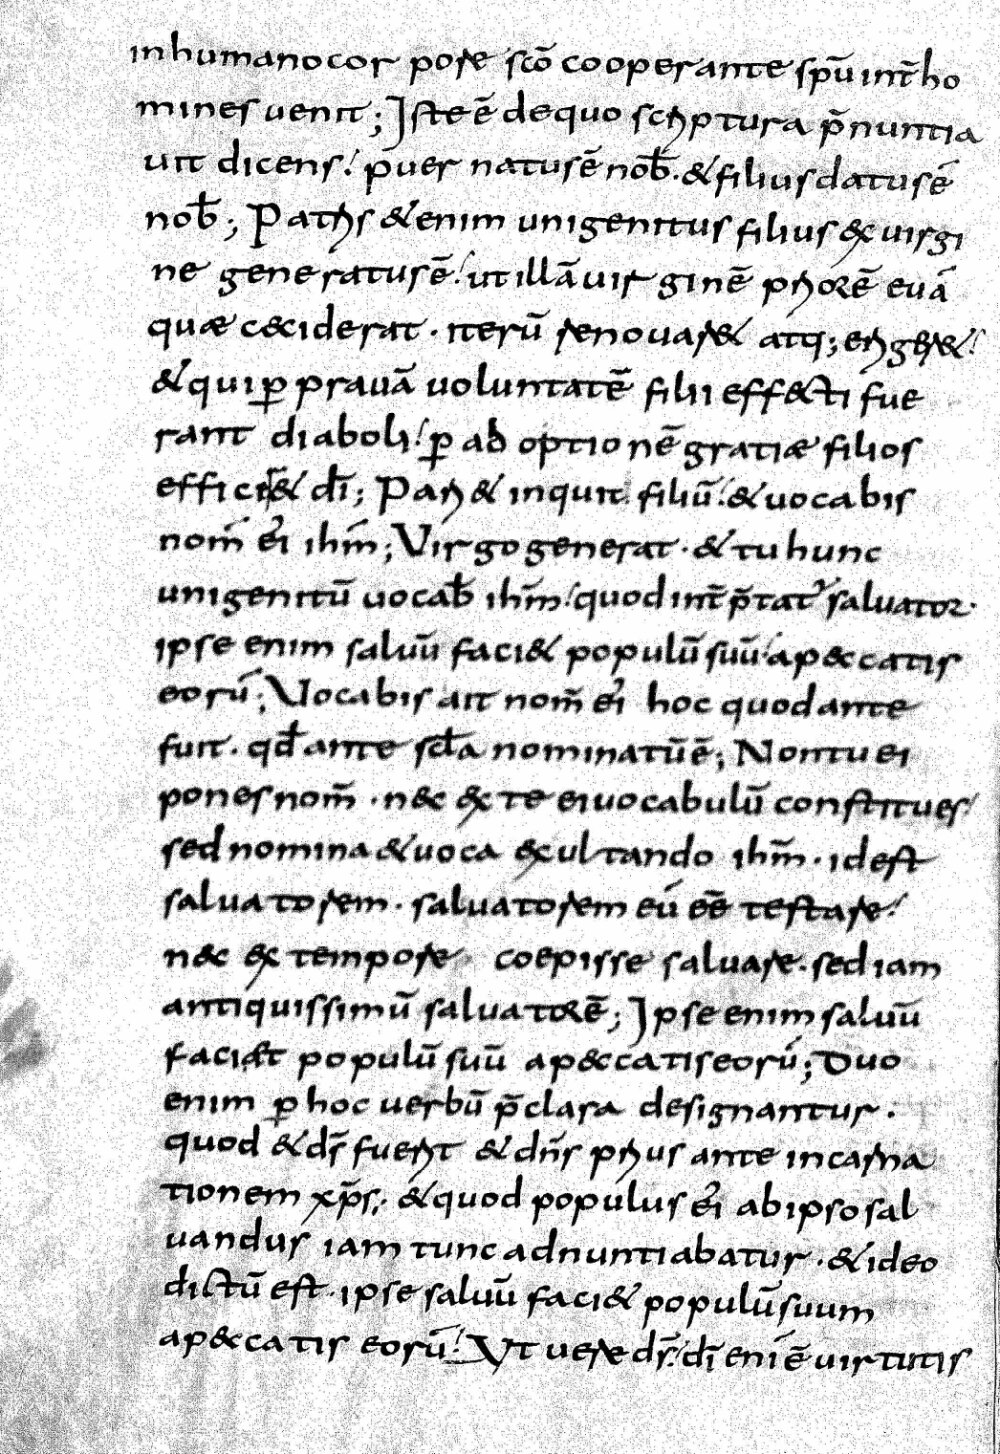 inhumano corpore sc̄o cooperante sp̄u int̄ ho
mines uenit; Iste ē de quo scriptura p̄nuntia
uit dicens! puer natus ē nob̄. & filius datus ē
nob̄; Patris & enim unigenitus filius ex uirgi
ne generatus ē! ut illā uirginē priorē euā
quae ceciderat. iterū renouaret atq; erigeret!
& qui ꝑ prauā uoluntatē filii effecti fue
rant diaboli! ꝑ adoptionē gratiae filios
efficeret dī; Pariet inquit filiū! & uocabis
nom̄ ei' ihm̄; Virgo generat. & tu hunc
unigenitū uocab̄ ihm̄! quod int̄p̄tat' saluator.
ipse enim saluū faciet populū suū! a peccatis
eorū; Vocabis ait nom̄ ei' hoc quod ante
fuit. qd̄ ante scl̄a nominatū ē; Non tu ei
pones nom̄. nec ex te ei uocabulū constitues!
sed nomina & uoca exultando ihm̄. id est
saluatorem. saluatorem eū eē testare!
nec ex tempore coepisse saluare. sed iam
antiquissimū saluatorē; Ipse enim saluū
faciet populū suū a peccatis eorū; Duo
enim ꝑ hoc uerbū p̄clara designantur.
quod & dr̄ fuerit & dn̄s prius ante incarna
tionem xp̄s; & quod populus ei' ab ipso sal
uandus iam tunc adnuntiabatur. & ideo
dictū est. ipse saluū faciet populū suum
a peccatis eorū! Vt uere dr̄! dī eni ē uirtutis